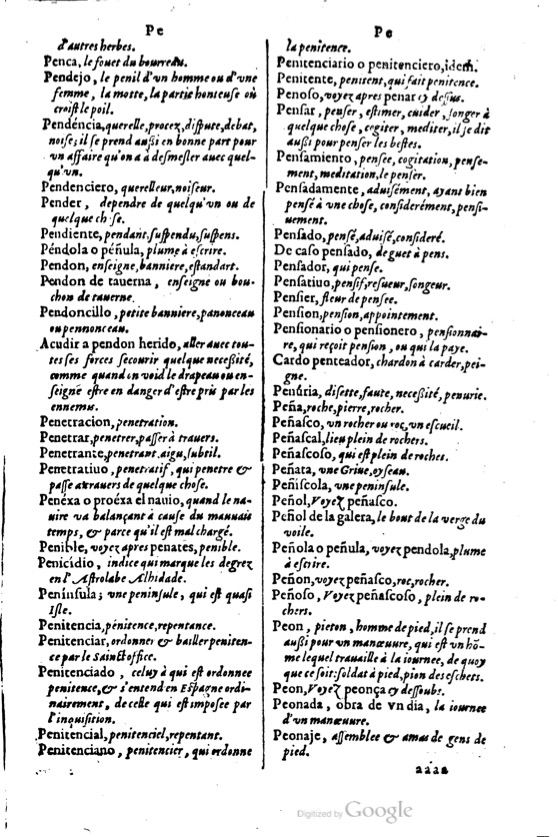 Pe
d'autres herbes.
Penca, le fouet du bourreau.
Pendejo, le penil d'vn homme ou d'vne
femme, la motte, la partie honteuse où
croist le poil.
Pendéncia, querelle, procez, dispute, debat,
noise; il se prend aussi en bonne part pour
vn affaire qu'on a à desmesler auec quel-
qu'vn.
Pendenciero, querelleur, noiseur.
Pender, dependre de quelqu'vn ou de
quelque chose.
Pendiente, pendant, suspendu, suspens.
Péndola o péñula, plume à escrire.
Pendon, enseigne, banniere, estandart.
Pendon de tauerna, enseigne ou bou-
chon de tauerne.
Pendoncillo, petite banniere, panonceau
ou pennonceau.
Acudir a pendon herido, aller auec tou-
tes ses forces secourir quelque necessité,
comme quand on void le drapeau ou en-
seigne estre en danger d'estre pris par les
ennemis.
Penetracion, penetration.
Penetrar, penetrer, passer à trauers.
Penetrante, penetrant, aigu, subtil.
Penetratiuo, penetratif, qui penetre &
passe atrauers de quelque chose.
Penéxa o proéxa el nauio, quand le na-
uire va balançant à cause du mauuais
temps, & parce qu'il est mal chargé.
Penible, voyez apres penates, penible.
Penicídio, indice qui marque les degrez
en l'Astrolabe Alhidade.
Península; vne peninsule, qui est quasi
Isle.
Penitencia, pénitence, repentance.
Penitenciar, ordonner & bailler peniten-
ce par le Sainct office.
Penitenciado, celuy à qui est ordonnee
penitence, & s'entend en Espagne ordi-
nairement, de celle qui est imposee par
l'inquisition.
Penitencial, penitenciel, repentant.
Penitenciano, penitencier, qui ordonne
Pe
la penitence.
Penitenciario o penitenciero, idem.
Penitente, penitent, qui fait penitence.
Penoso, voyez apres penar cy dessus.
Pensar, penser, estimer, cuider, songer à
quelque chose, cogiter, mediter, il se dit
aussi pour penser les bestes.
Pensamiento, pensee, cogitation, pense-
ment, meditation, le penser.
Pensadamente, aduisément, ayant bien
pensé à vne chose, considerément, pensi-
uement.
Pensado, pensé, aduisé, consideré.
De caso pensado, de guet à pens.
Pensador, qui pense.
Pensatiuo, pensif, resueur, songeur.
Pensier, fleur de pensee.
Pension, pension, appointement.
Pensionario o pensionero, pensionnai-
re, qui reçoit pension, ou qui la paye.
Cardo penteador, chardon à carder, pei-
gne.
Penúria, disette, faute, necessité, penurie.
Peña, roche, pierre, rocher.
Peñasco, vn rocher ou roc, vn escueil.
Peñascal, lieu plein de rochers.
Peñascoso, qui est plein de roches.
Peñata, vne Griue, oyseau.
Peñiscola, vne peninsule.
Peñol, Voyez peñasco.
Peñol de la galera, le bout de la verge du
voile.
Peñola o peñula, voyez pendola, plume
à escrire.
Peñon, voyez peñasco, roc, rocher.
Peñoso, Voyez peñascoso, plein de ro-
chers.
Peon, pieton, homme de pied, il se prend
aussi pour vn manœuure, qui est vn hõ-
me lequel trauaille à la iournee, de quoy
que ce soit: soldat à pied, pion des eschets.
Peon, Voyez peonça cy dessoubs.
Peonada, obra de vn dia, la iournee
d'vn manœuure.
Peonaje, assemblee & amas de gens de
pied.
aaaa
Digitized by Google